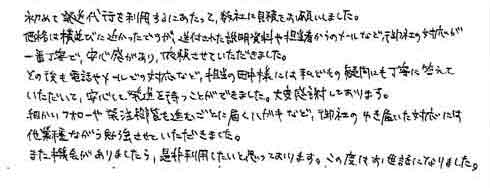 初めて発送代行を利用するにあたって、数社に見積をお願いしました。
価格は横並びに近かったですが、送付された説明資料や担当者からのメールなど、御社の対応が
一番丁寧で、安心感があり、依頼させていただきました。
その後も電話やメールでの対応など、担当の田中様には私どもの疑問にも丁寧に答えて
いただいて、安心して発送を待つことができました。大変感謝しております。
細かいフォローや発注後も進むごとに届くハガキなど、御社の行き届いた対応には
他業種ながら勉強させていただきました。
また機会がありましたら、是非利用したいと思っております。この度はお世話になりました。